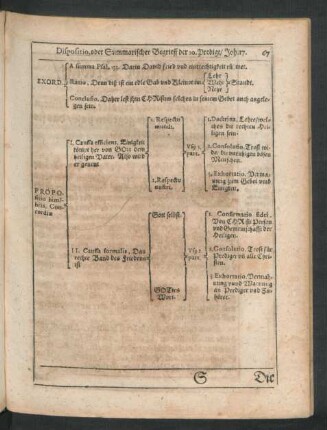 Dispositio, oder Summarischer Begrieff der 10. Predigt/ Joh: 17. 67
EXORD.
A summo Psal. 133. Darin David fried und einträchtigkeit
Ratio. Denn diß ist ein edle Gab und Kleinot im
Lehr
Wehr
Stande.
Conclusio. Daher lest ihm CHRistus solches in seinem Gebet auch angelegen sein.
PROPO-
sitio
Concordia
I. Causa efficiens. Einigkeit
kömmt her von GOtt dem
heiligen Vater. Also wird
er genent
1. Respectu
2. Respectu
nostri.
Usus
1. Doctrina.
die rechten Hei-
ligen sein:
2. Consolatio. Trost
Menschen.
3. Exhortatio. Verma-
nung zum Gebet umb
Einigkeit.
II. Causa formalis. Das
rechte Band des Friedens
ist
Gott selbst.
GOttes
Wort.
Usus
1. Confirmatio fidei,
Von CHRisti Person
und Gemeinschafft der
Heiligen.
2. Consolatio. Trost für
Prediger und alle Chri-
sten.
3. Exhortatio. Vermah-
nung und Warnung
an Prediger und Zu-
hörer.
S Die